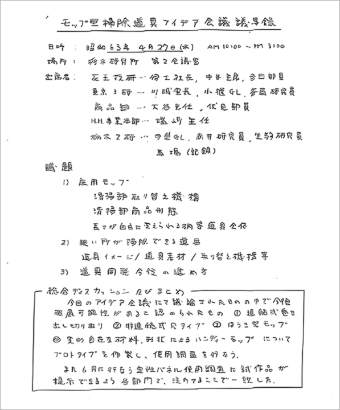 モップ型掃除道具アイデア会議議事録
日時: 昭和63年4月27日(水) AM10:00〜PM3:00
場所: 栃木研究所 第2会議室
出席者: 花王技研…社長、中村主席、部員
東京3研…川城室長、小堀GL、研究員
商品部…大谷主任、伏見部員
H.H.事業本部…塚崎主任
栃木2研…GL、赤井研究員、生駒研究員
馬場(記録)
議題
1) 応用モップ
清掃部取り替え機構
清掃部商品形態
長さが自由に変えられる柄等道具全体
2) 狭い所が掃除できる道具
道具イメージ/道具素材/取り替え機構等
3) 道具開発今後の進め方
総合ディスカッション及びまとめ
今日のアイデア会議にて議論されたものの中で今後
発展可能性があると認められたもの ①連続式巻き
出し切り取り ②非連続式 タイプ ③ほうき型モップ
④変形自在な材料、形状によるハンディーモップについて
プロトタイプを作製し、使用調査を行なう。
また6月に行なう主性パネル使用調査に試作品が
提示できるよう各部門で、注力することで一致した。